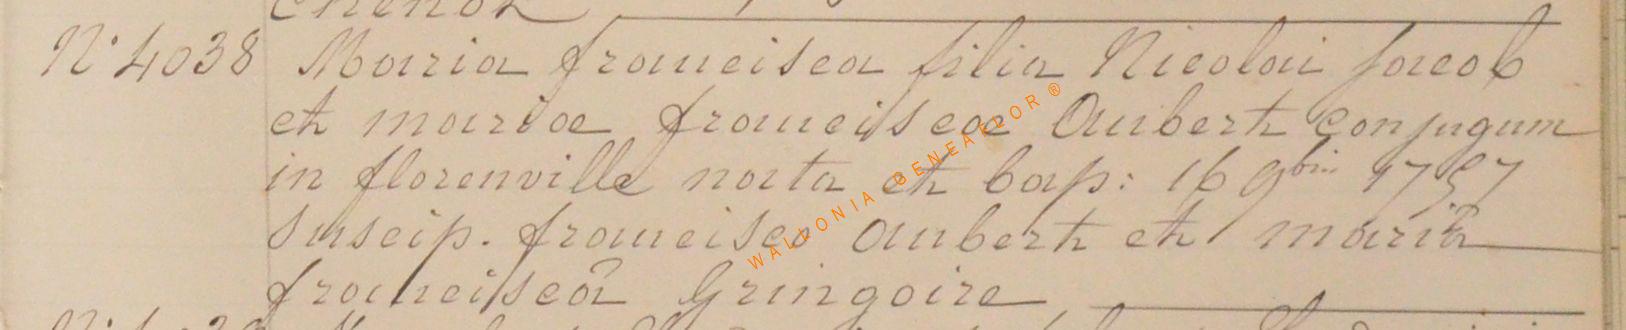 chenot
N° 4038 Maria francisca filia Nicolai jacob
et mariae franciscae Aubert conjugum
in florenville nata et bap: 16 9bris 1757
suscip. francisco Aubert et mariâ
franciscâ Gringoire
WALLONIA BENEAFLOR ®